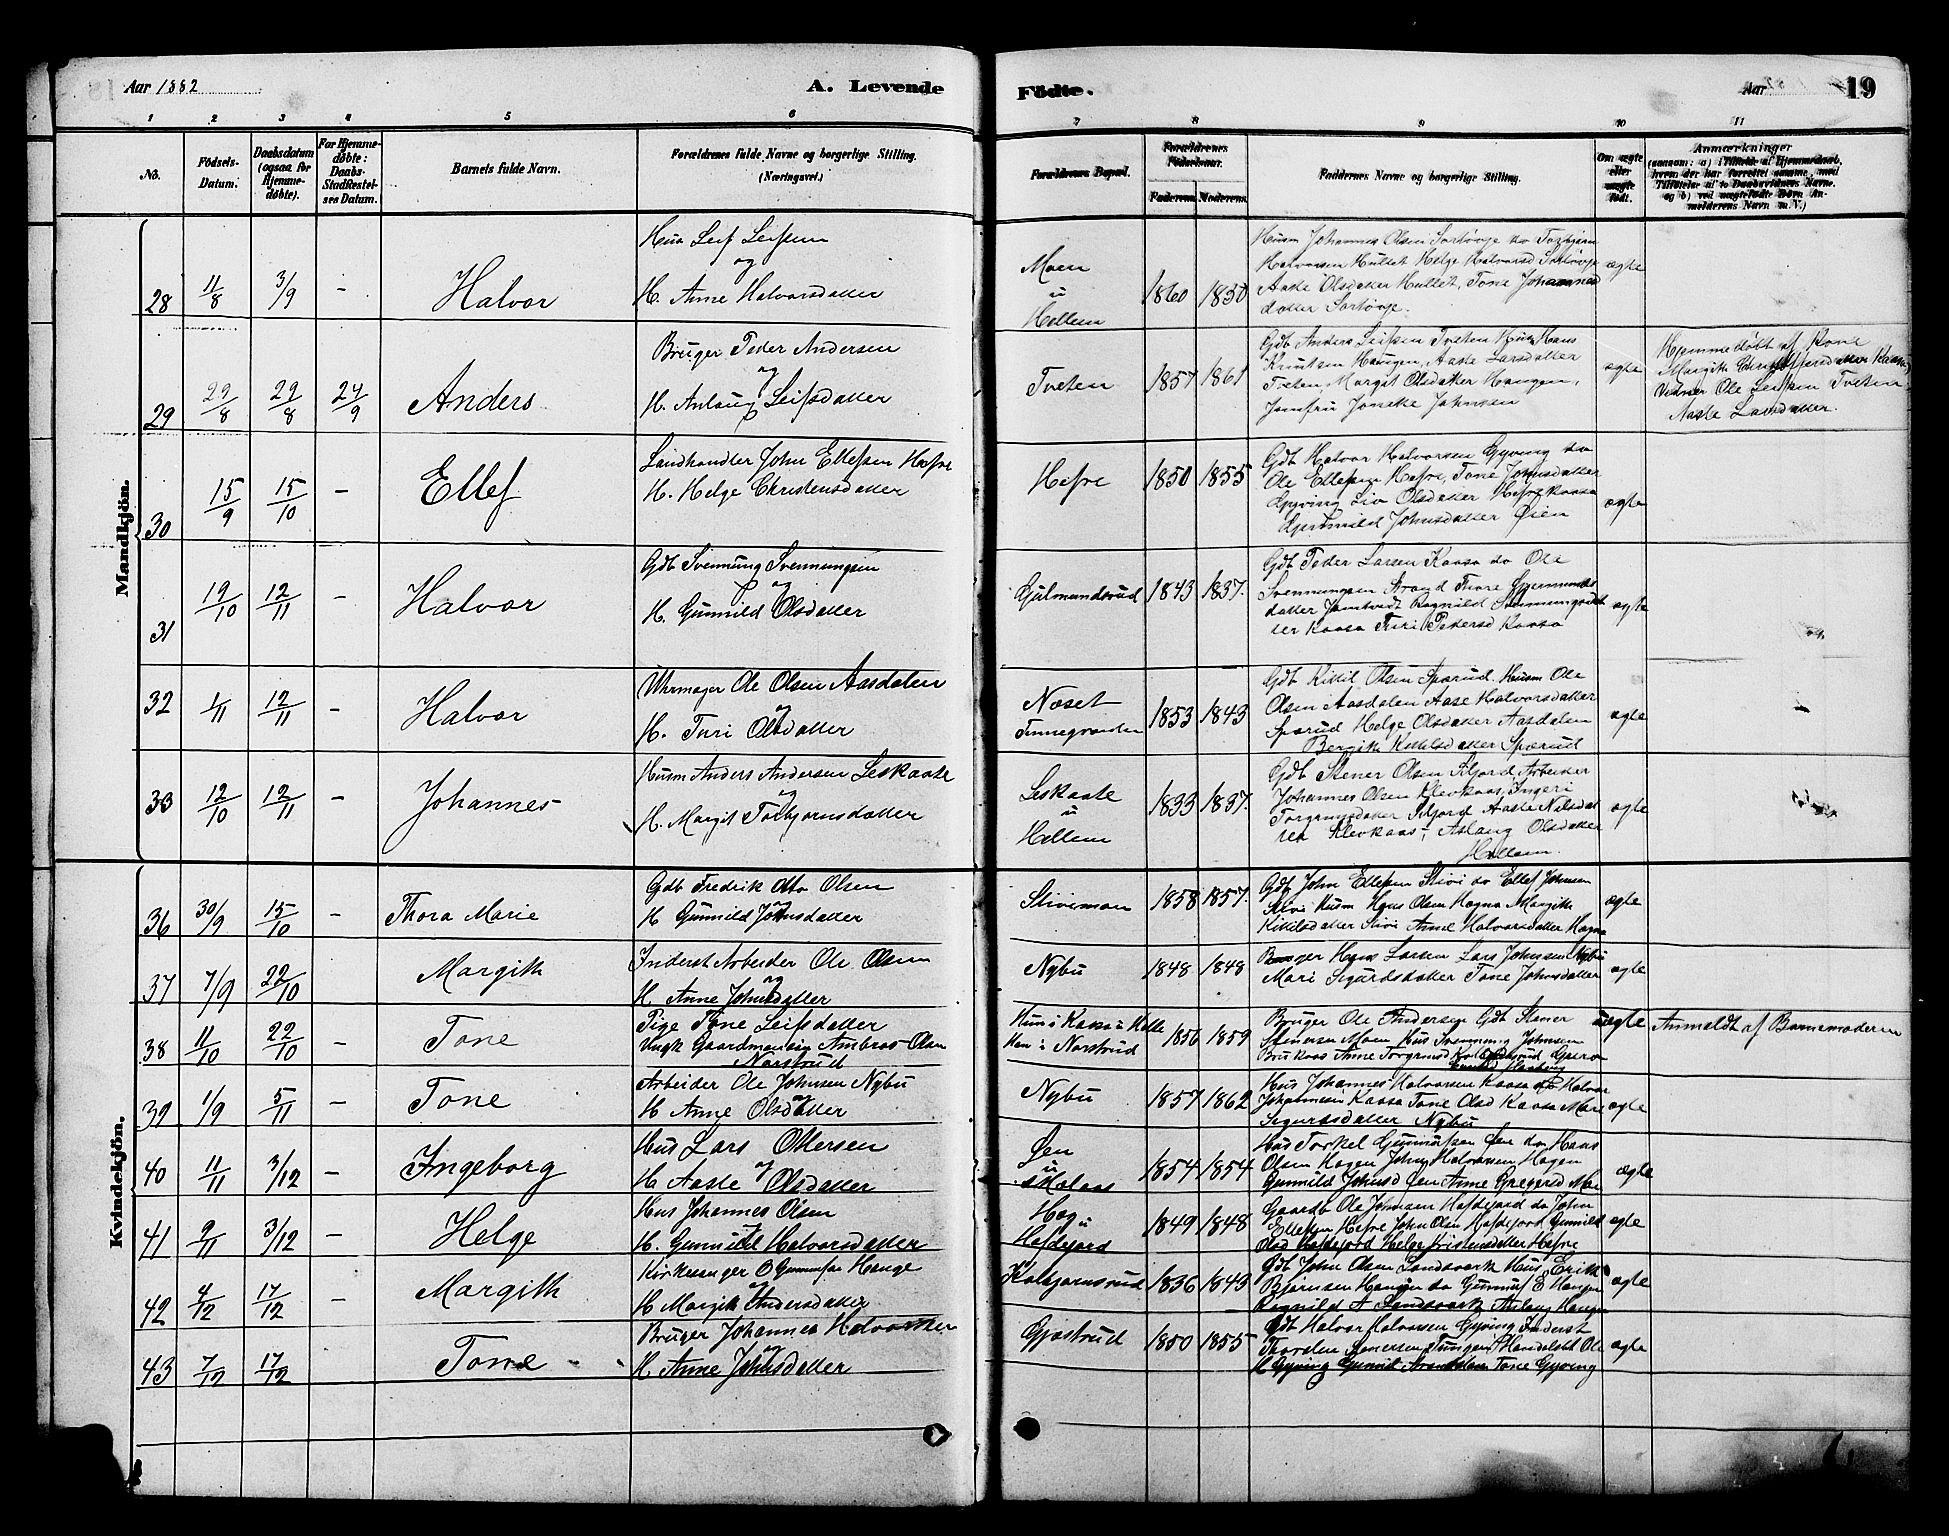 Aar 1882
A. Levende
Födte.
Aar
19
1 2 3 4 5 6 7 8 9 10 11
No.
Födsels-
Datum.
Daabsdatum
(ogsaa for
Hjemme-
döbte).
For Hjemme-
döbte:
Daabs-
Stadfæstel-
ses Datum.
Barnets fulde Navn.
Forældrenes fulde Navne og borgerlige Stilling.
(Næringsvei.)
Forældrenes Bopæl.
Forældrenes
Födselsaar.
Faderens
Moderens
Faddernes Navne og borgerlige Stilling.
Om ægte
eller
uægte
födt.
Anmærkninger
Mandkjön.
28 11/8 3/9 - Halvor
Hus Leif Leifsen
og
H. Anne Halvorsdatter
Moen
u
Hellem
1860 1850
Husm Johannes Olsen Sortövje do Torbjörn
Halvorsen Hullet Helge Halvorsd Sortövje
Aaste Olsdatter Hullet, Tone Johannes
datter Sortövje.
ægte
29 29/8 29/8 24/9 Anders
Bruger Peder Andersen
og
H. Anlaug Leifsdatter
Tveten
1857 1861
Gdb Anders Leifsen Tveten Husm Hans
Knutsen Haugen, Aaste Larsdatter
Tveten Margit Olsdatter Haugen,
Jomfru Johnsen
ægte
Hjemmedöbt af Kone
Margith
Vidner Ole Leifsen Tveten
Aaste Larsdatter.
30 15/9 15/10 - Ellef
Landhandler John Ellefsen Hefre
H. Helge Christensdatter
Hefre
1850 1855
Gdb Halvor Halvorsen Gyving do
Ole Ellefsen Hefre, Tone Johnsdatter
Gyving Liv Olsdatter Hefrekaasa
Johnsdatter Öien
ægte
31 19/10 12/11 - Halvor
Gdb Svennung Svennungsen
og
H. Gunnild Olsdatter
Gulmundsrud
1843 1837.
Gdb Peder Larsen Kaasa do Ole
Svennungsen Tone
datter Ragnild Svennungsdat
ter Kaasa Turi Pedersd Kaasa
ægte
32 1/11 12/11 - Halvor
Uhrmager Ole Olsen Aasdalen
og
H. Turi Olsdatter
Næset
Tinnegranden
1853 1843
Gdb Kittil Olsen Spærud Husm Ole
Olsen Aasdalen Aase Halvorsdatter
Spærud Helge Olsdatter Aasdalen
Bergith Kittilsdatter Spærud
ægte
33 12/10 12/11 - Johannes
Husm Anders Andersen Leskaste
og
H. Margit Torbjornsdatter
Leskaste
u
Hellem
1833 1837.
Gdb Stener Olsen Arbeider
Johannes Olsen Klevkaas, Ingeri
Torgrimsdatter Aaste Nilsdat
ter Klevkaas, Aslaug Olsdatter
Hellem.
ægte
Kvindekjön.
36 30/9 15/10 - Thora Marie
Gdb Fredrik Otto Olsen
og
H Gunnild Johnsdatter
Stivimoen
1858 1857.
Gdb John Ellefsen Stivi do Ellef Johnsen
Stivi Husm Hans Olsen Hogna Margith
Kittilsdatter Stivi Anne Halvorsdatter Hogna
ægte
37 7/9 22/10 Margith
Inderst Arbeider Ole Olsen
og
H Anne Johnsdatter
Nybu
1848 1848
Bruger Hans Larsen Lars Johnsen Nybu
Mari Sigurdsdatter Tone Johnsdatter
ægte
38 11/10 22/10 - Tone
Pige Tone Leifsdatter
Ungk Gaardmandsön Ambros Olsen
Norstrud
Hun i Kaasa u Helle
Han i Norstrud
1856 1859
Bruger Ole Andersen Gdb Stener
Stenersen Moen Hus Svennung Johnsen
Brukaas Anne Torgrimsd
uægte
Anmeldt af Barnemoderen
39 1/9 5/11 - Tone
Arbeider Ole Johnsen Nybu
og
H Anne Olsdatter
Nybu
1857 1862
Hus Johannes Halvorsen Kaasa do Halvor
Johannesen Kaasa Tone Olsd Kaasa Mari
Sigurdsdatter Nybu
ægte
40 11/11 3/12 - Ingeborg
Hus Lars Ottersen
og
H Aaste Olsdatter
Öen
u
1854 1854
Hus Torkel Gunnufsen Öen do Hans
Olsen Hagen John Halvorsen Hagen
Gunnild Johnsd Öen Anne Gregersd Moe
ægte
41 2/11 3/12 - Helge
Hus Johannes Olsen
H. Gunnild Halvorsdatter
Hog
u
Hafdejord
1849 1848
Gaardb Ole Johnsen Hafdejord do John
Ellefsen Hefre John Olsen Hafdejord Gunild
Olsd Hafdejord Helge Kristensdatter Hefre
ægte
42 4/12 17/12 - Margith
Kirkesanger O Gunnufsen Hauge
og
H Margith Andersdatter
Kolbjornsrud
1836 1843
Gdb John Olsen Landsverk Hus Erik
Björnsen Haugen do Gunnuf E Haugen
Ragnild A Landsverk Anlaug Haugen
ægte
43 7/12 17/12 Tone
Bruger Johannes Halvorsen
og
H Anne Johnsdatter
Gjöstrud
1850 1855
Gdb Halvor Halvorsen Gyving Inderst
Torsten Stenersen Ole
H Gyving Gunild Tone Gyving
ægte